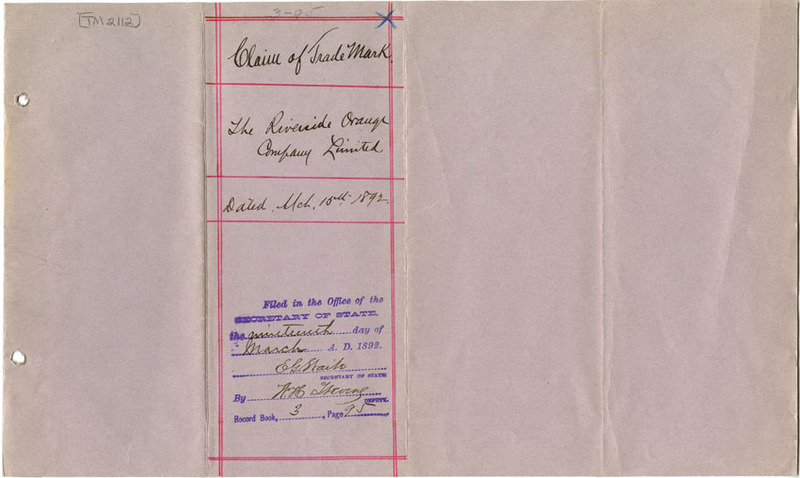 [TM2112]
3-95
Claim of Trade Mark.
The Riverside Orange
Company Limited
Dated Mch. 15th 1892.
Filed in the Office of the
SECRETARY OF STATE.
the nineteenth day of
March A. D. 1892.
E G Waite
SECRETARY OF STATE
By
DEPUTY.
Record Book, 3, Page 95